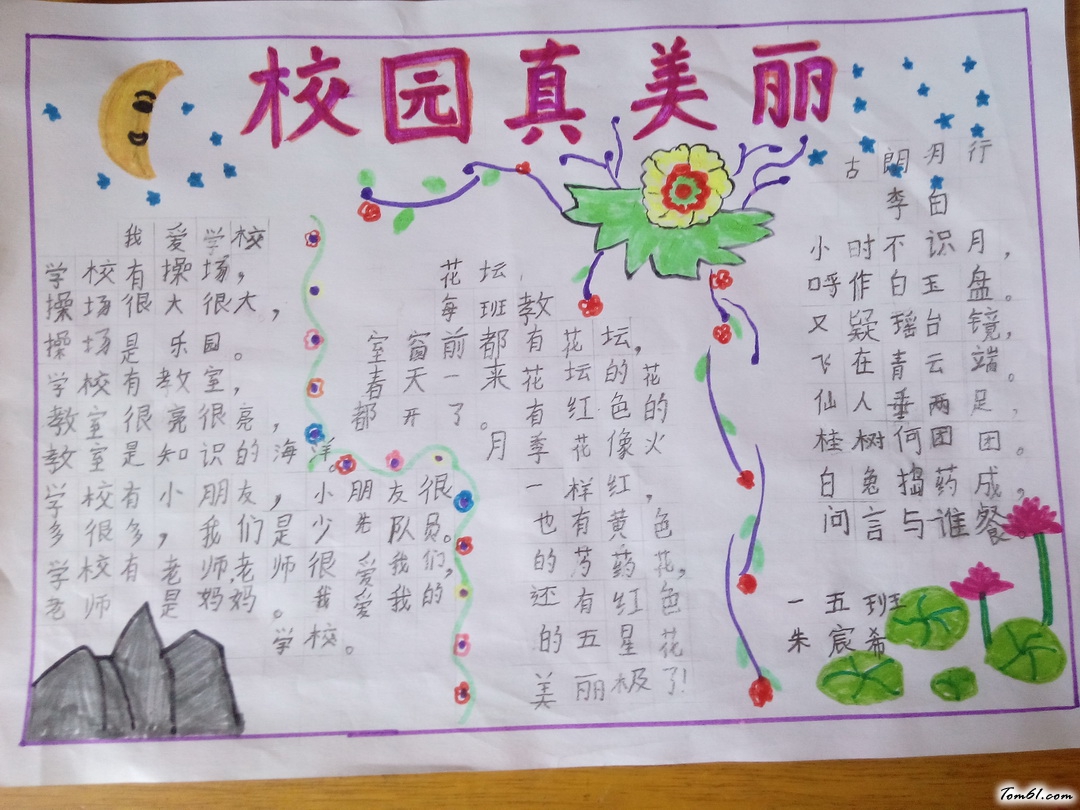 校园真美丽
我爱学校
学校有操场，
操场很大很大，
操场是乐园。
学校有教室，
教室很亮很亮，
教室是知识的海洋。
学校有小朋友，小朋友很
多很多，我们是少先队员。
学校有老师，老师很爱我们，
老师是妈妈。我爱我的
学校。
花坛，
每班教
室窗前都有花坛，
春天一来花坛的花
都开了。有红色的
月季花像火
一样红，
也有黄色
的芍药花，
还有红色
的五星花
美丽极了！
古朗月行
李白
小时不识月，
呼作白玉盘。
又疑瑶台镜，
飞在青云端。
仙人垂两足，
桂树何团团。
白兔捣药成，
问言与谁餐。
一五班
朱宸希
Tom61.com